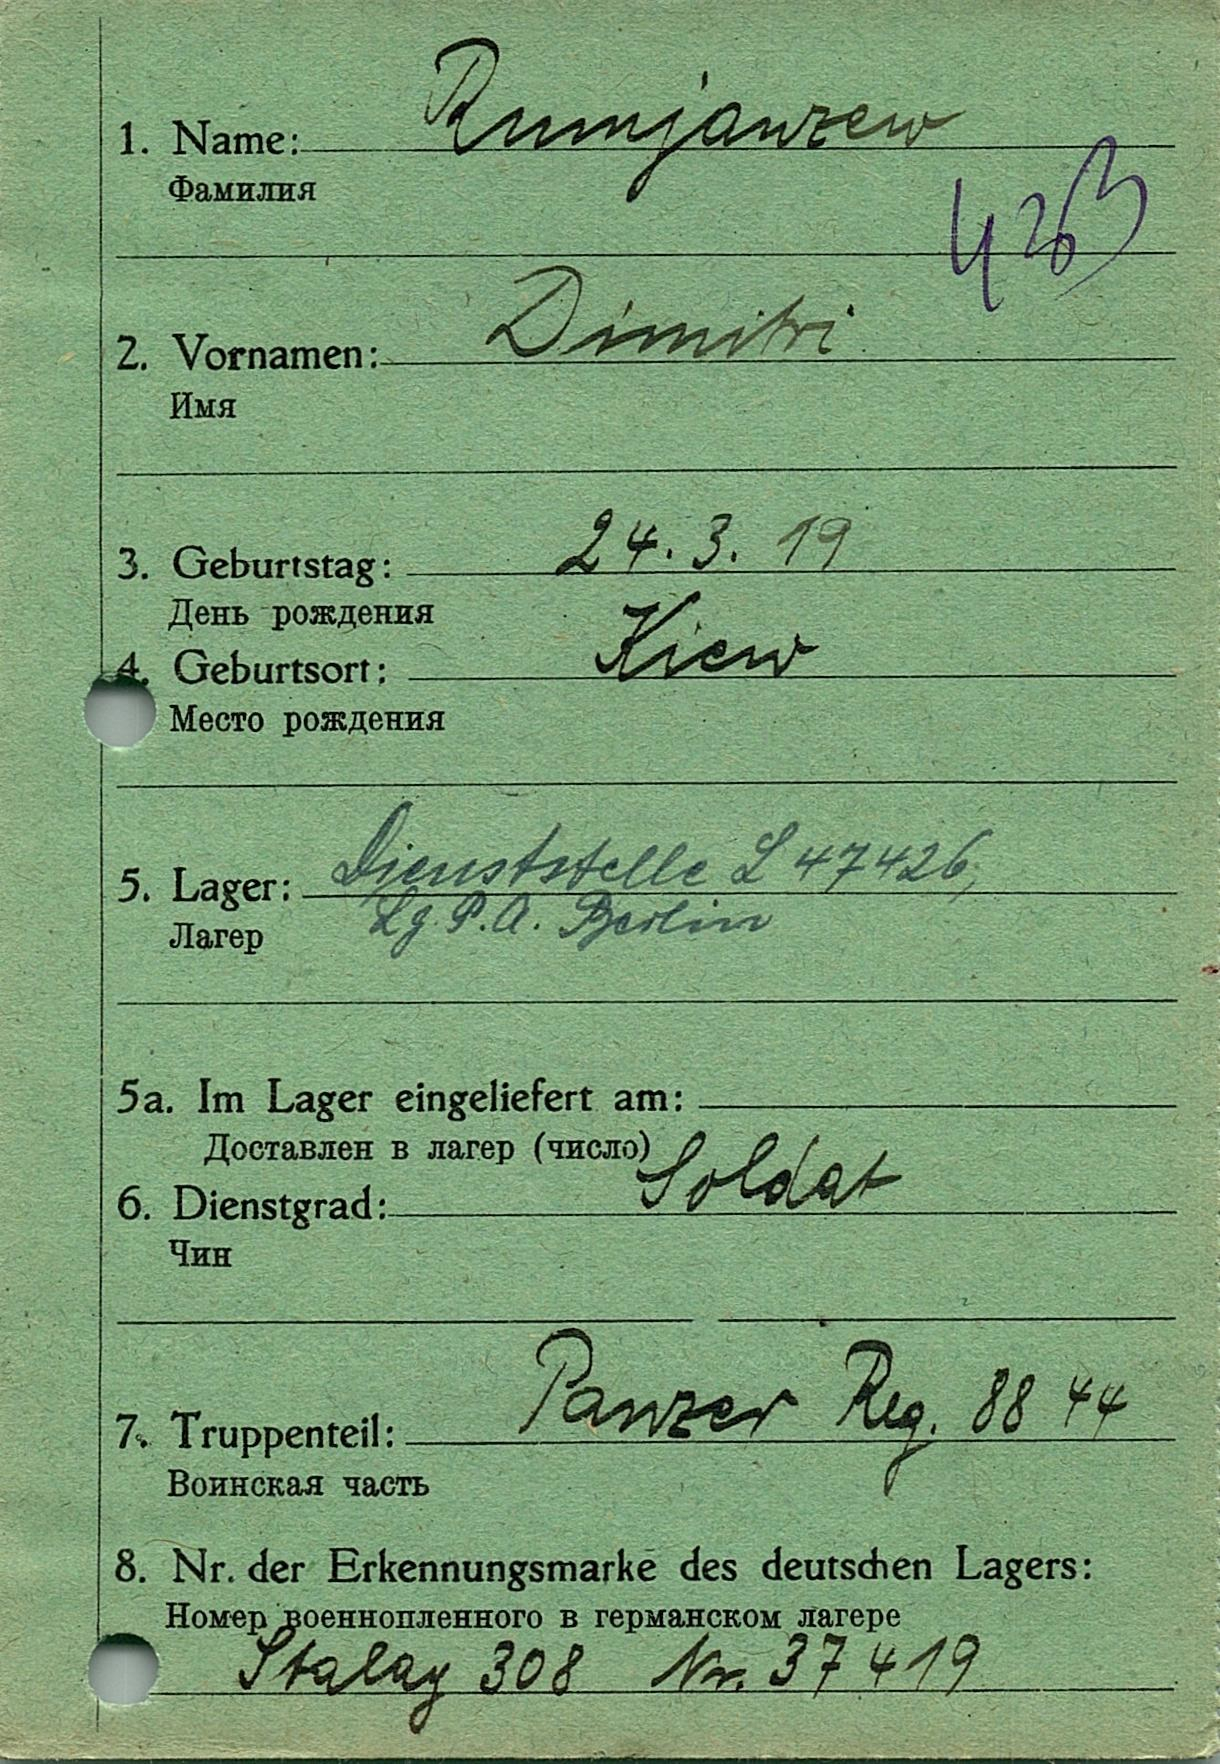 1. Name: Rumjanzew
Фамилия
2. Vornamen: Dimitri
Имя
3. Geburtstag: 24.3.19
День рождения
4. Geburtsort: Kiew
Место рождения
5. Lager: Dienststelle L 47426,
Lg. P.A. Berlin
Лагер
5a. Im Lager eingeliefert am:
Доставлен в лагер (число)
6. Dienstgrad: Soldat
Чин
7. Truppenteil: Panzer Reg. 88 44
Воинская часть
8. Nr. der Erkennungsmarke des deutschen Lagers:
Номер военнопленного в германском лагере
Stalag 308 Nr. 37419